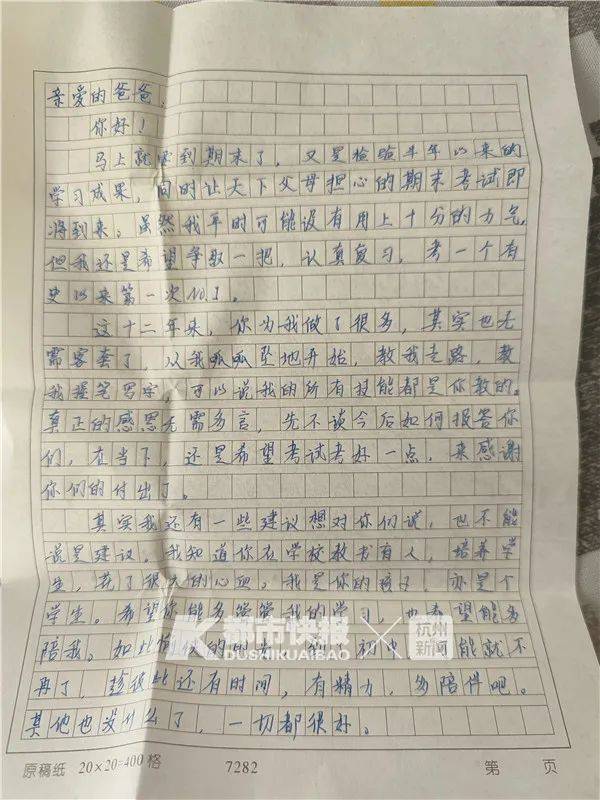 亲爱的爸爸，
你好！
马上就要到期末了，又是检验半年以来的
学习成果，同时让天下父母担心的期末考试即
将到来。虽然我平时可能没有用上十分的力气，
但我还是希望争取一把，认真复习，考一个有
史以来第一次NO.1。
这十二年来，你为我做了很多，其实也无
需客套了，从我呱呱坠地开始，教我走路，教
我握笔写字，可以说我的所有技能都是你教的。
真正的感恩无需多言，先不谈今后如何报答你
们，在当下，还是希望考试考好一点，来感谢
你们的付出了。
其实我还有一些建议想对你们说，也不能
说是建议。我知道你在学校教书育人，培养学
生，花了很大的心血。我是你的孩子，亦是个
学生。希望你能多管管我的学习，也希望能多
陪我。如此愉快的时光，到了初中 能就不
再了，趁彼此还有时间，有精力，多陪伴吧。
其他也没什么了，一切都很好。
都市快报 × 杭州新闻
DUSHIKUAIBAO
原稿纸 20×20=400格 7282 第 页